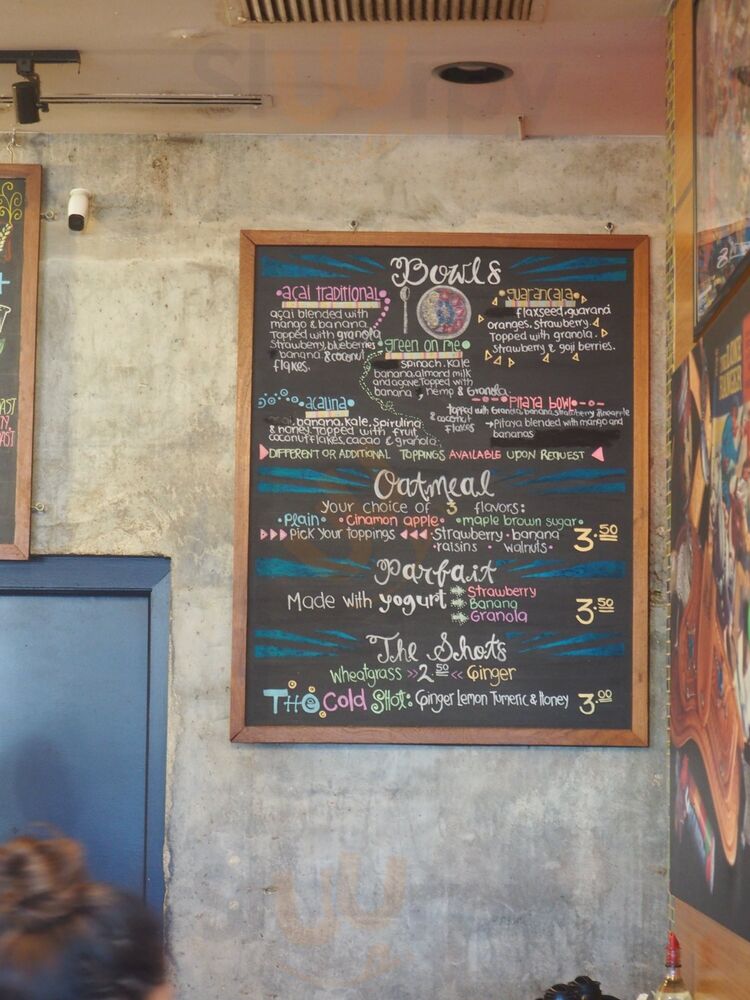 Bowls
açai traditional
açai blended with
mango & banana
Topped with granola
Strawberry, blueberries
banana & coconut
flakes.
guarançaía
flaxseed, guarana
oranges, strawberry.
Topped with granola.
Strawberry & goji berries.
green on me
spinach, kale
banana, almond milk
and agave Topped with
banana, hemp & Granola
açaiina
banana, Kale, Spirulina
& honey. Topped with fruit,
coconut flakes, cacao & granola
Pitaya bowl
topped with Granola, banana, strawberry, Pineapple
& coconut
flakes
Pitaya blended with mango and
bananas
DIFFERENT OR ADDITIONAL TOPPINGS AVAILABLE UPON REQUEST
Oatmeal
Your choice of 3 flavors:
Plain • Cinamon apple • maple brown sugar
Pick Your toppings Strawberry • banana
•raisins • walnuts •
3.50
Parfait
Made with yogurt
Strawberry
Banana
Granola
3.50
The Shots
Wheatgrass >> 2.50 << Ginger
THE Cold Shot: Ginger Lemon Tumeric & Honey 3.00